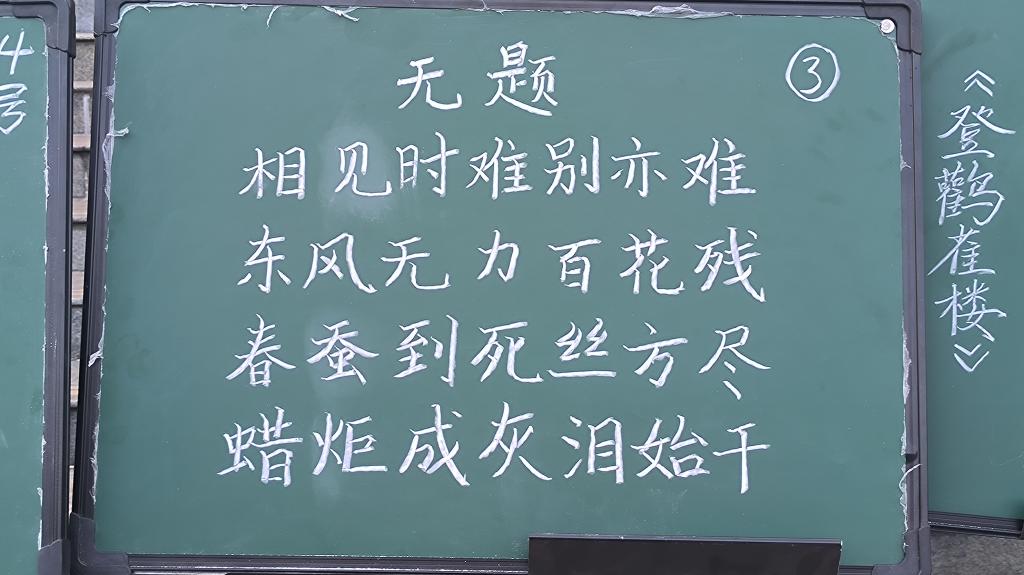 4号
无题
③
相见时难别亦难
东风无力百花残
春蚕到死丝方尽
蜡炬成灰泪始干
《登鹳雀楼》